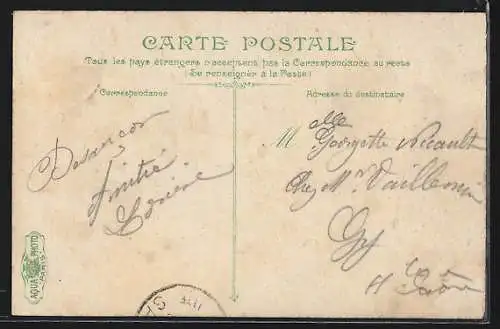 CARTE POSTALE
Tous les pays étrangers n'acceptent pas la Correspondance au recto
(Se renseigner à la Poste)
Correspondance
Adresse du destinataire
Besançon
Amitié
M elle Georgette Nicault
Chez Mr Vuillemin
Gy
Hte Saône
AQUA PHOTO
PARIS